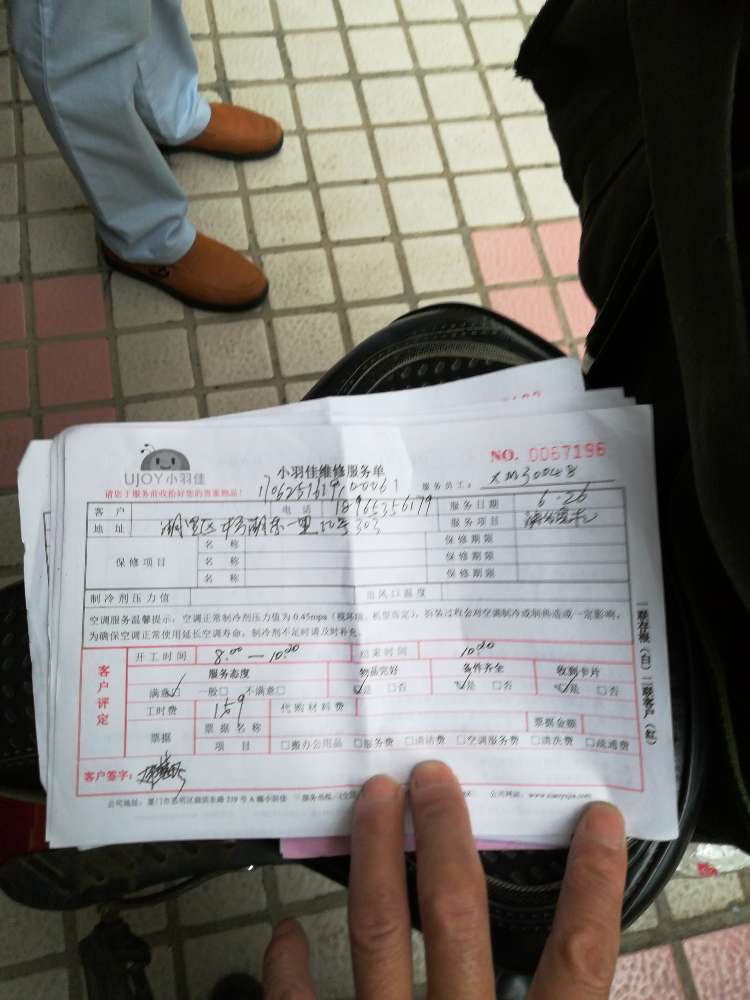 UJOY小羽佳
小羽佳维修服务单
NO. 0067196
请您于服务前收拾好您的贵重物品!
服务员工: XM30048
客户
电话 18965356179
服务日期 6.26
地址
服务项目
保修项目
名称
保修期限
名称
保修期限
名称
保修期限
制冷剂压力值
出风口温度
空调服务温馨提示:空调正常制冷剂压力值为0.45mpa(视环境、机型而定),拆装过程会对空调制冷或制热造成一定影响,
为确保空调正常使用延长空调寿命,制冷剂不足时请及时补充。
客户评定
开工时间 8:00—10:00
结束时间 10:00
服务态度
物品完好
备件齐全
收到卡片
满意 一般 不满意
是 否
是 否
是 否
工时费 159
代购材料费
票据
票据名称
票据金额
项目
搬办公用品 服务费 清洁费 空调服务费 清洗费 疏通费
客户签字:
一联存根(白)二联客户(红)
公司网站: